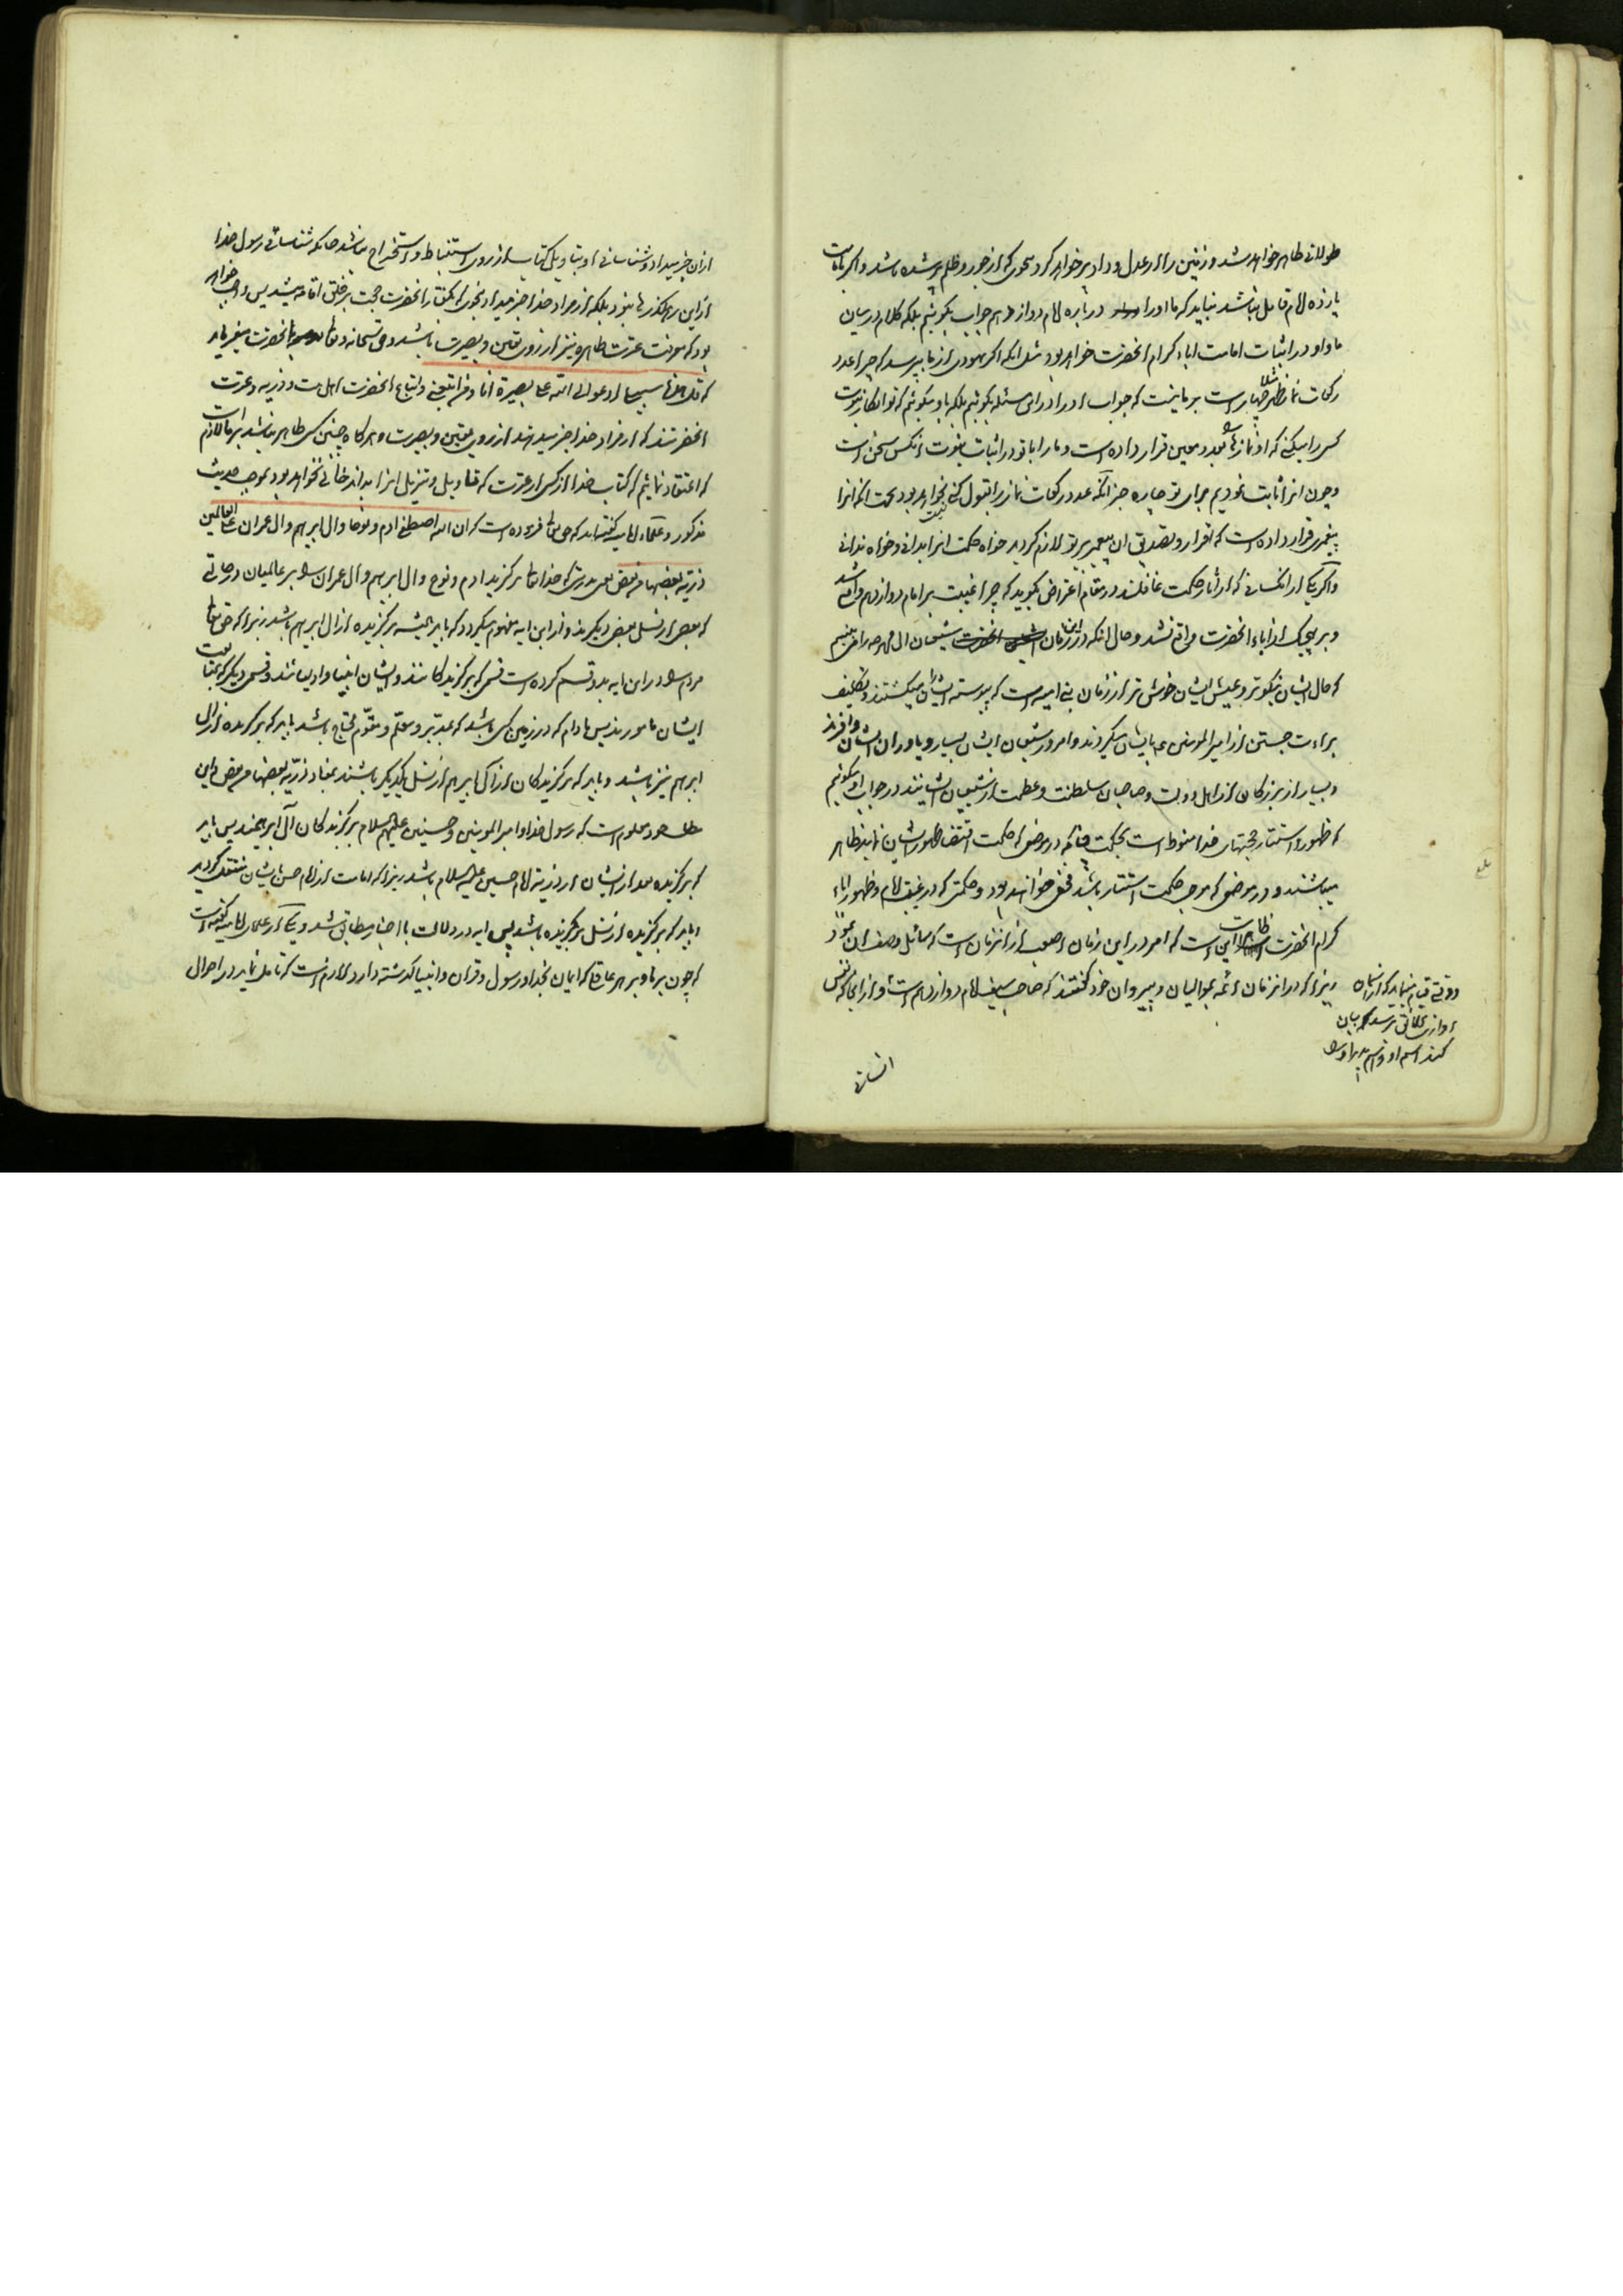 طولانی ظاهر خواهد شد و زمین را از عدل و داد پر خواهد کرد بنحوی که از جور و ظلم پر شده باشد و اگر بامامت
یازده امام قایل نباشد نباید که ما او را درباره امام دوازدهم جواب بگوئیم بلکه کلام در میان
ما و او در اثبات امامت اباء کرام انحضرت خواهد بود مثل انکه اگر یهودی از ما بپرسد که چرا عدد
رکعات نماز ظهر مثلا چهار است بر ما نیست که جواب او را در این مسئله بگوئیم بلکه باو میگوئیم که تو انکار نبوت
کسی را میکنی که او نمازها را بعدد معین قرار داده است و ما را با تو در اثبات نبوت انکس سخن است
و چون انرا ثابت نمودیم برای تو چاره جز انکه عدد رکعات نماز را قبول کنی نخواهد بود بجهت انکه انرا
پیغمبری قرار داده است که اقرار و تصدیق ان پیغمبر بر تو لازم گردید خواه حکمت انرا بدانی و خواه ندانی
و اگر یکی از انکسانی که از اثار حکمت غافلند در مقام اعتراض بگوید که چرا غیبت بر امام دوازدهم واقع شد
و بر هیچیک از اباء انحضرت واقع نشد و حال انکه در این زمان شیعیان ال محمد را می بینیم
که حال ایشان نیکوتر و عیش ایشان خوش تر از زمان بنی امیه است که پیوسته ایشان را میکشتند و تکلیف
براءت جستن از امیر المومنین ع بایشان میکردند و امروز شیعیان ایشان بسیار و یاوران ایشان وافرند
و بسیار از بزرگان از اهل دولت و صاحبان سلطنت و عظمت از شیعیان ایشانند در جواب او میگوئیم
که ظهور و استتار حجتهای خدا منوط است بحکمت چنانکه در موضعی که حکمت اقتضا ظهور ایشان نماید ظاهر
میباشند و در موضعی که موجب حکمت استتار باشد مخفی خواهند بود و حکمتی که در غیبت امام و ظهور اباء
کرام انحضرت این است که امر در این زمان اصعب از انزمان است
زیرا که در انزمان ائمه بموالیان و پیروان خود گفتند که صاحب سیف امام دوازدهم است و از برای که نفس
وقتی قیام نماید که از آسمان
اوازی بخلائق برسد که بیان
کند اسم او و اسم پدر او را
انسانی
از ان خبر میداد و شناسائی او بتاویل کتاب از روی استنباط و استخراج نباشد چنانکه شناسائی رسول خدا
از این رهگذرها نبود بلکه از مراد خدا خبر میداد بنحوی که بگفتار انحضرت حجت بر خلق اقامه میشد پس واجب خواهد
بود که معرفت عترت طاهره نیز از روی یقین و بصیرت باشد و حق سبحانه و تعالی بانحضرت میفرماید
که قل هذه سبیلی ادعوا الی الله علی بصیرة انا و من اتبعنی و اتباع انحضرت اهل بیت و ذریه و عترت
انحضرتند که از مراد خدا خبر میدهند از روی یقین و بصیرت و هرگاه چنین کس ظاهر نباشد بر ما لازم است
که اعتقاد نمائیم که کتاب خدا از کسی از عترت که تاویل و تنزیل انرا بداند خالی نخواهد بود بموجب حدیث
مذکور و علماء امامیه گفته‌اند که حق تعالی فرموده است که ان الله اصطفی ادم و نوحا و ال ابرهیم و ال عمران علی العالمین
ذریة بعضها من بعض یعنی بدرستیکه خدایتعالی برگزید ادم و نوح و ال ابرهیم و ال عمران را بر عالمیان در حالتی
که بعضی از نسل بعضی دیگرند و از این ایه مفهوم میگردد که باید همیشه برگزیده از ال ابرهیم باشد زیرا که حق تعالی
مردم را در این ایه بدو قسم کرده است قسمی که برگزیدگانند و ایشان انبیا و اوصیایند و قسمی دیگر که بمتابعت
ایشان مامورند پس مادام که در زمین کسی باشد که بمدبر و معلم و مقوم محتاج باشد باید که برگزیده از ال
ابرهیم نیز باشد و باید که برگزیدگان از ال ابرهیم از نسل یکدیگر باشند بمفاد ذریة بعضها من بعض و این
معلوم است که رسول خدا و امیر المومنین و حسنین علیهم السلام برگزیدگان آل ابرهیمند پس باید
که برگزیده بعد از ایشان از ذریة امام حسین علیه السلام باشد زیرا که امامت از امام حسن بایشان منتقل گردید
و باید که برگزیده از نسل برگزیده باشد پس ایه در دلالت با اخبار مطابق شد و یکی از علمای امامیه گفته است
که چون بر ما و بر هر عاقل که ایمان بخدا و رسول و قران و انبیا گذشته دارد لازم است که تامل نماید در احوال